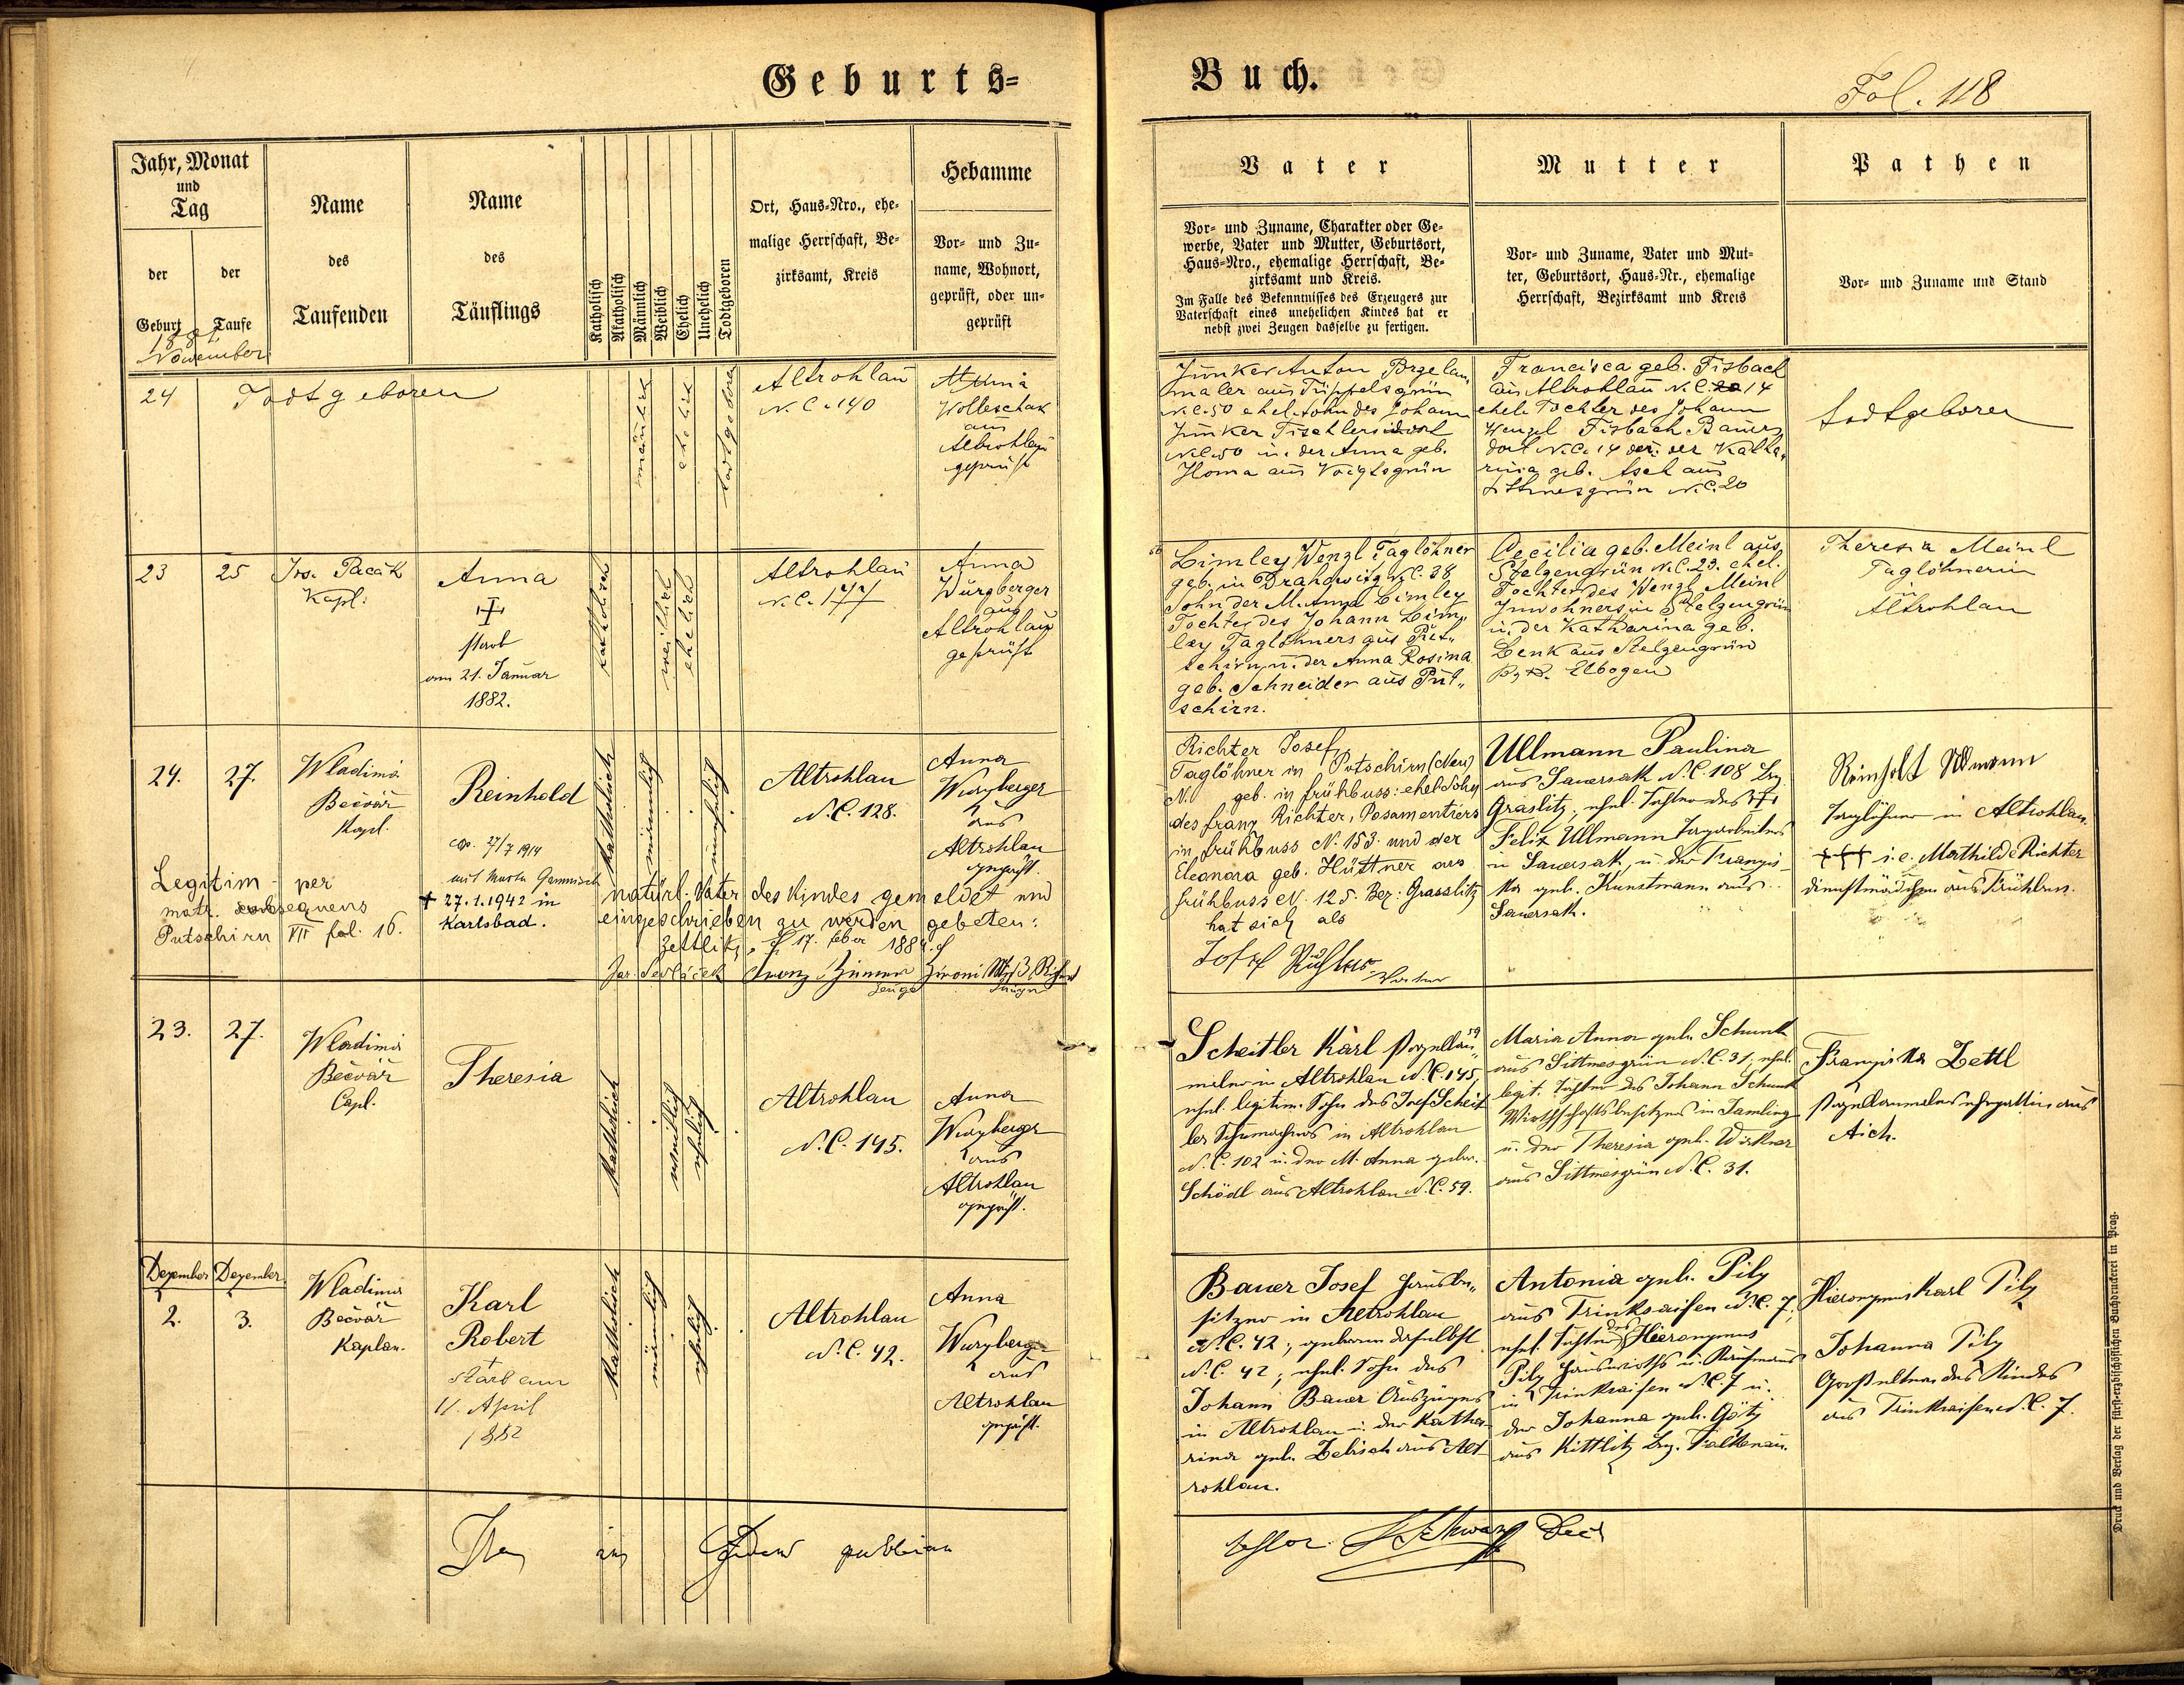 Geburts=
Buch.
Fol. 118
Jahr, Monat
und
Tag
der
Geburt
der
Taufe
1881
November
Name
des
Taufenden
Name
des
Täuflings
Katholisch
Akatholisch
Männlich
Weiblich
Ehelich
Unehelich
Todtgeboren
Ort, Haus=Nro., ehe=
malige Herrschaft, Be=
zirksamt, Kreis
Hebamme
Vor= und Zu=
name, Wohnort,
geprüft, oder un=
geprüft
Vater
Vor= und Zuname, Charakter oder Ge=
werbe, Vater und Mutter, Geburtsort,
Haus=Nro., ehemalige Herrschaft, Be=
zirksamt und Kreis.
Im Falle des Bekenntnisses des Erzeugers zur
Vaterschaft eines unehelichen Kindes hat er
nebst zwei Zeugen dasselbe zu fertigen.
Mutter
Vor= und Zuname, Vater und Mut=
ter, Geburtsort, Haus=Nr., ehemalige
Herrschaft, Bezirksamt und Kreis
Pathen
Vor= und Zuname und Stand
24
Todtgeboren
männlich
ehelich
todtgeboren
Altrohlau
N.C. 140
Anna
Wolleschak
aus
Altrohlau
geprüft
Junker Anton Porzelan
maler aus Tüppelsgrün
N.C. 50 ehel. Sohn des Johann
Junker Tischlers dort
N.C. 50 u. der Anna geb.
Homa aus Voigtsgrün
Francisca geb. Fisbach
aus Altrohlau N.C. 14
ehel. Tochter des Johann
Wenzel Fisbach Bauers
dort N.C. 14 der Katha,
rina geb. aus
Sittmesgrün N.C. 20
todtgeboren
23
25
Jos. Pacák
Kapl.
Anna
†
starb
am 21. Januar
1882.
katholisch
weiblich
ehelich
Altrohlau
N.C. 177
Anna
Würzberger
aus
Altrohlau
geprüft
Limley Wenzl Taglöhner
geb. in Drahowitz N.C. 38
Sohn der M. Anna Limley
Tochter des Johann Lim„
ley Taglöhners aus Püt„
schirn u. der Anna Rosina
geb. Schneider aus Püt„
schirn.
Cecilia geb. Meinl aus
Stelzengrün N.C. 23. ehel.
Tochter des Wenzl Meinl
Inwohners in Stelzengrün
u. der Katharina geb.
Lenk aus Stelzengrün
Bzk. Elbogen
Theresia Meinl
Taglöhnerin
in
Altrohlau
24.
27.
Wladimir
Bečvář
Kapl.
Reinhold
cop. 27/7 1914
mit Marta
+ 27.1.1942 in
Karlsbad.
katholisch
männlich
unehelich
Altrohlau
N.C. 128.
Anna
Wurzberger
aus
Altrohlau
geprüft.
Legitim per
matr. subsequens
Putschirn VII fol. 16.
natürl. Vater des Kindes gemeldet und
eingeschrieben zu werden gebeten:
Zettlitz, 17. feber 1884.
Jar. Sedláček Franz Zimmer
Zeuge
Richter Josef,
Taglöhner in Putschirn (Neu)
N. geb. in frühbuss: ehel. Sohn
des franz Richter, Posamentiers
in frühbuss N. 153. und der
Eleonora geb. Hüttner aus
frühbuss N. 125. Bez. Grasslitz
hat sich als
Josef Richter
Vater
Ullmann Paulina
aus Sauersak N.C. 108 Bez.
Graslitz, ehel. Tochter des
Felix Ullmann Tagarbeiters
in Sauersak, u. der Franzis
ka geb. Kunstmann aus
Sauersak.
Reinholt Ullmann
Taglöhner in Altrohlau.
+++ i.e. Mathilde Richter
dienstmädchen aus Frühbuss.
23.
27.
Wladimir
Bečvář
Capl.
Theresia
katholisch
weiblich
ehelich
Altrohlau
N.C. 145.
Anna
Wurzberger
aus
Altrohlau
geprüft.
Scheitler Karl Porzellan„
maler in Altrohlau N.C. 145,
ehel. legitim. Sohn des Josef Scheit
ler Schumachers in Altrohlau
N.C. 102 u. der M. Anna gebor.
Schödl aus Altrohlau N.C. 59.
Maria Anna geb. Schunk
aus Sittmesgrün N.C. 31, ehel.
legit. Tochter des Johann Schunk
Wirthschaftsbesitzers in Damling
u. der Theresia geb. Wirkner
aus Sittmesgrün N.C. 31.
Franziska Zettl
Porzellanmalersehegattin aus
Aich.
Dezember
Dezember
2.
3.
Wladimir
Bečvář
Kaplan.
Karl
Robert
+
starb am
11. April
1882
katholisch
männlich
ehelich
Altrohlau
N.C. 42.
Anna
Wurzberger
aus
Altrohlau
geprüft.
Bauer Josef Hausbe„
sitzer in Altrohlau
N.C. 42, geboren daselbst
N.C. 42, ehel. Sohn des
Johann Bauer Auszügers
in Altrohlau u. der Katha
rina geb. Lebisch aus Alt
rohlau.
Antonia geb. Pilz
aus Trinksaifen N.C. 7,
ehel. Tochter des Hieronymus
Pilz Hauswirths u. Kaufmanns
in Trinksaifen N.C. 7 u.
der Johanna geb. Götz
aus Kittlitz Bez. Falkenau.
Hieronymus Karl Pilz
Johanna Pilz
Großeltern des Kindes
aus Trinksaifen N.C. 7.
Druck und Verlag der fürst=erzbischöflichen Buchdruckerei in Prag.